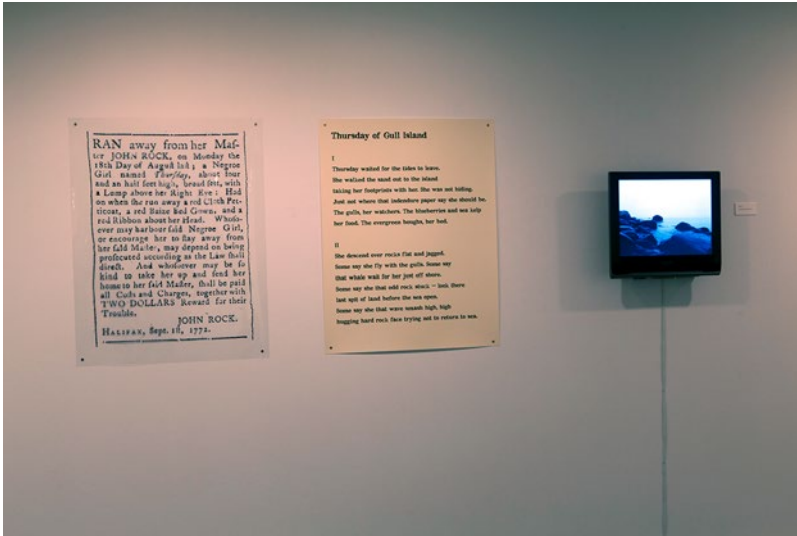 RAN away from her Maſ-
ter JOHN ROCK, on Monday the
18th Day of Auguſt laſt; a Negroe
Girl named Thurſday, about four
and an half feet high, broad ſett, with
a Lump above her Right Eye: Had
on when ſhe run away a red Cloth Pet-
ticoat, a red Baize bed Gown, and a
red Ribbon about her Head. Whoſo-
ever may harbour ſaid Negroe Girl,
or encourage her to ſtay away from
her ſaid Maſter, may depend on being
proſecuted according as the Law ſhall
direct. And whoſoever may be ſo
kind to take her up and ſend her
home to her ſaid Maſter, ſhall be paid
all Coſts and Charges, together with
TWO DOLLARS Reward for their
Trouble.
JOHN ROCK.
HALIFAX, Sept. 1772.
Thursday of Gull Island
I
Thursday waited for the tides to leave.
She walked the sand out to the island
taking her footprints with her. She was not hiding.
Just not where that indenture paper say she should be.
The gulls, her watchers. The blueberries and sea kelp
her food. The evergreen boughs, her bed.
II
She descend over rocks flat and jagged.
Some say she fly with the gulls. Some say
that whale wait for her just off shore.
Some say she that odd rock stuck – look there
last spit of land before the sea open.
Some say she that wave smash high, high
hugging hard rock face trying not to return to sea.